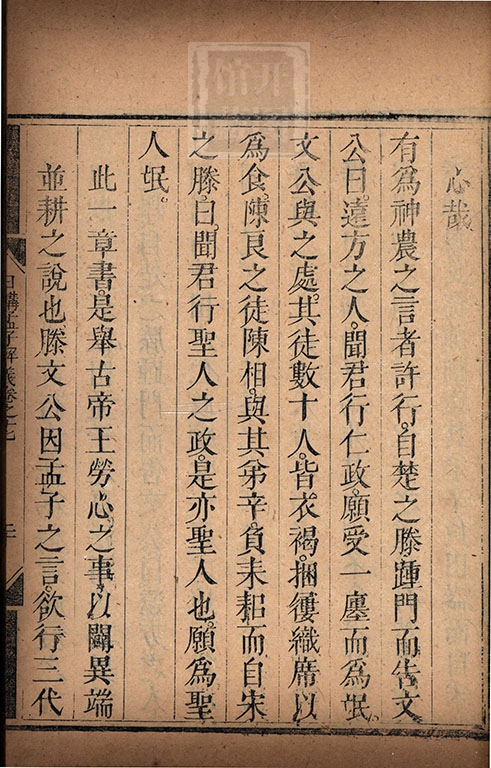 心哉
有爲神農之言者許行。自楚之滕。踵門而告文
公曰。遠方之人。聞君行仁政。願受一廛而爲氓。
文公與之處。其徒數十人。皆衣褐。捆屨織席以
爲食。陳良之徒陳相。與其弟辛。負耒耜而自宋
之滕。曰。聞君行聖人之政。是亦聖人也。願爲聖
人氓。
此一章書。是舉古帝王勞心之事。以闢異端
並耕之說也。滕文公因孟子之言。欲行三代
日講孟子解義卷之七